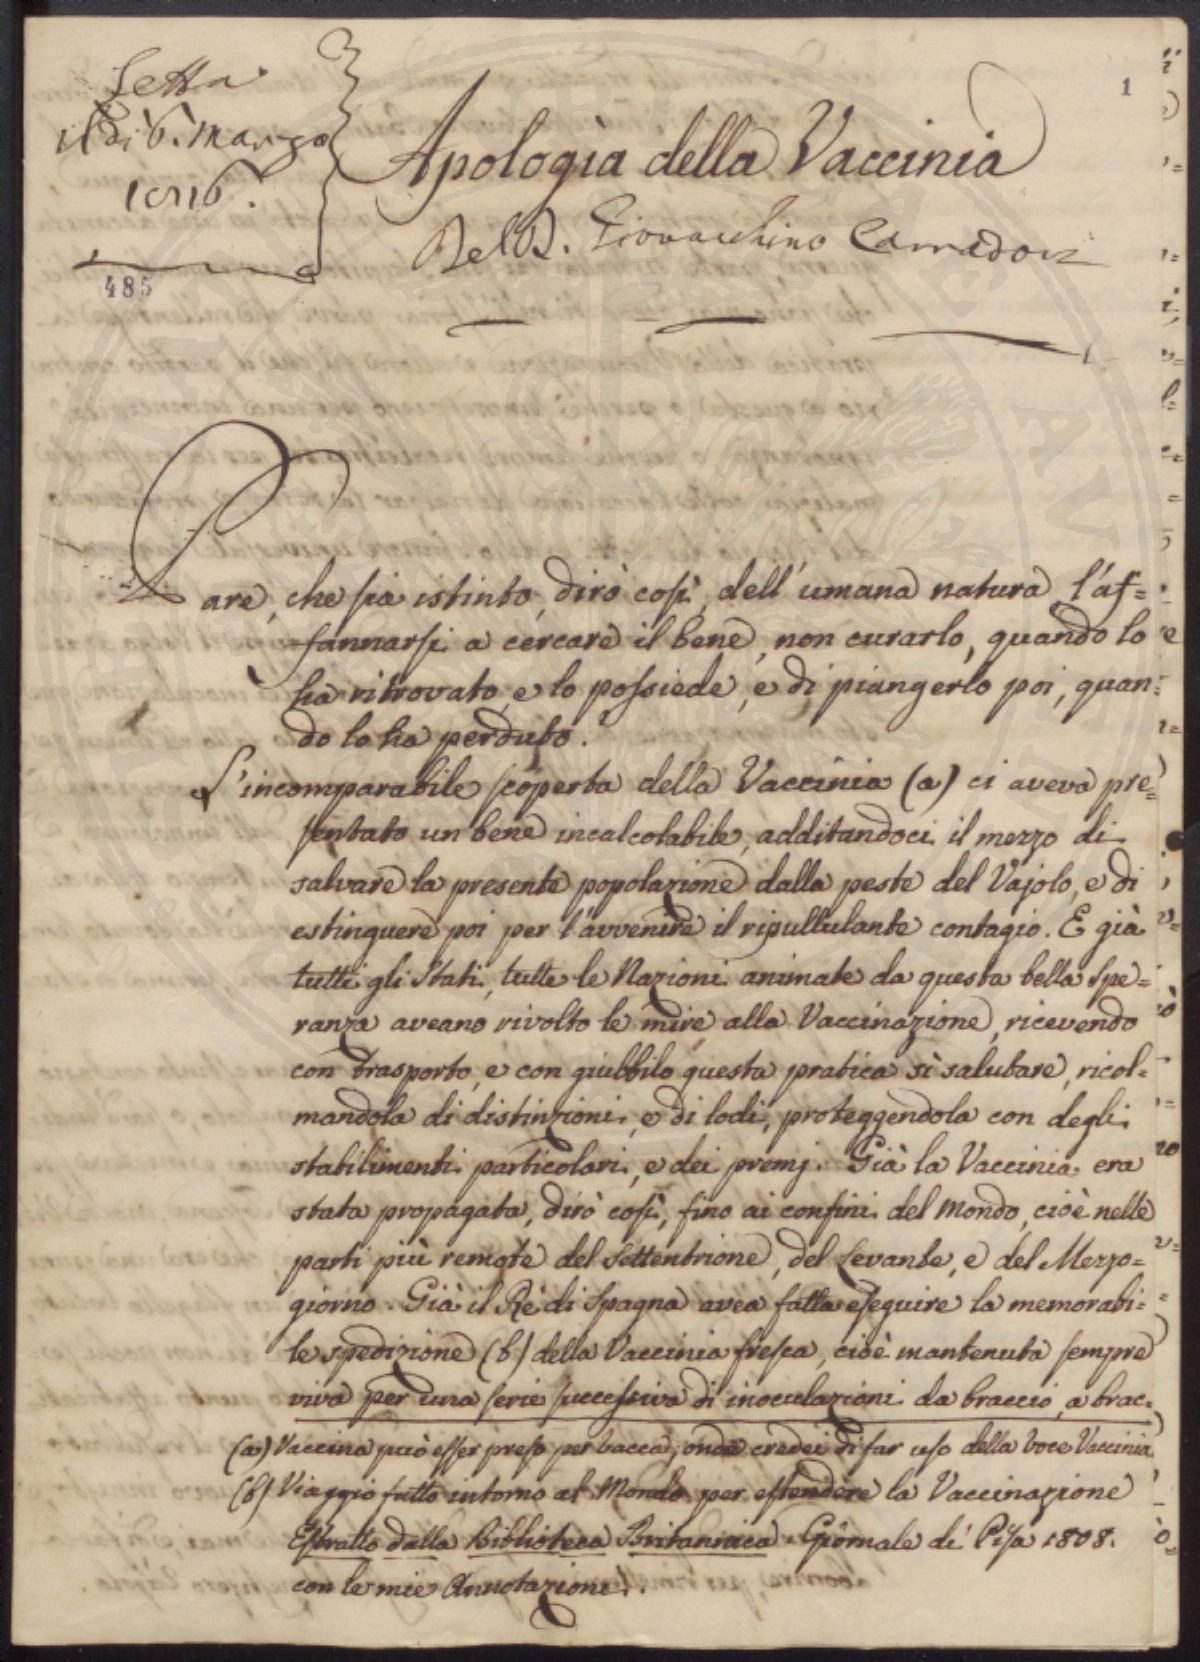 Letta
il dì 6. Marzo
1816.
485
1
Apologìa della Vaccinia
Del D. Giovacchino Carradori
Pare, che sia istinto, dirò così, dell'umana natura l'af=
fannarsi a cercare il bene, non curarlo, quando lo
ha ritrovato, e lo possiede, e di piangerlo poi, quan=
do lo ha perduto.
L'incomparabile scoperta della Vaccinia (a) ci aveva pre=
sentato un bene incalcolabile, additandoci il mezzo di
salvare la presente popolazione dalla peste del Vajolo, e di
estinguere poi per l'avvenire il ripullulante contagio. E già
tutti gli Stati, tutte le Nazioni animate da questa bella spe=
ranza aveano rivolto le mire alla Vaccinazione, ricevendo
con trasporto, e con giubbilo questa pratica sì salutare, ricol=
mandola di distinzioni, e di lodi, proteggendola con degli
stabilimenti particolari, e dei premj. Già la Vaccinia era
stata propagata, dirò così, fino ai confini del Mondo, cioè nelle
parti più remote del Settentrione, del Levante, e del Mezzo=
giorno. Già il Rè di Spagna avea fatta eseguire la memorabi=
le spedizione (b) della Vaccinia fresca, cioè mantenuta sempre
viva per una serie successiva di inoculazioni da braccio, a brac=
(a) Vaccina può esser preso per bacca; onde credei di far uso della voce Vaccinia
(b) Viaggio fatto intorno al Mondo per estendere la Vaccinazione
Estratto dalla Biblioteca Britannica. Giornale di Pisa 1808.
con le mie Annotazioni.